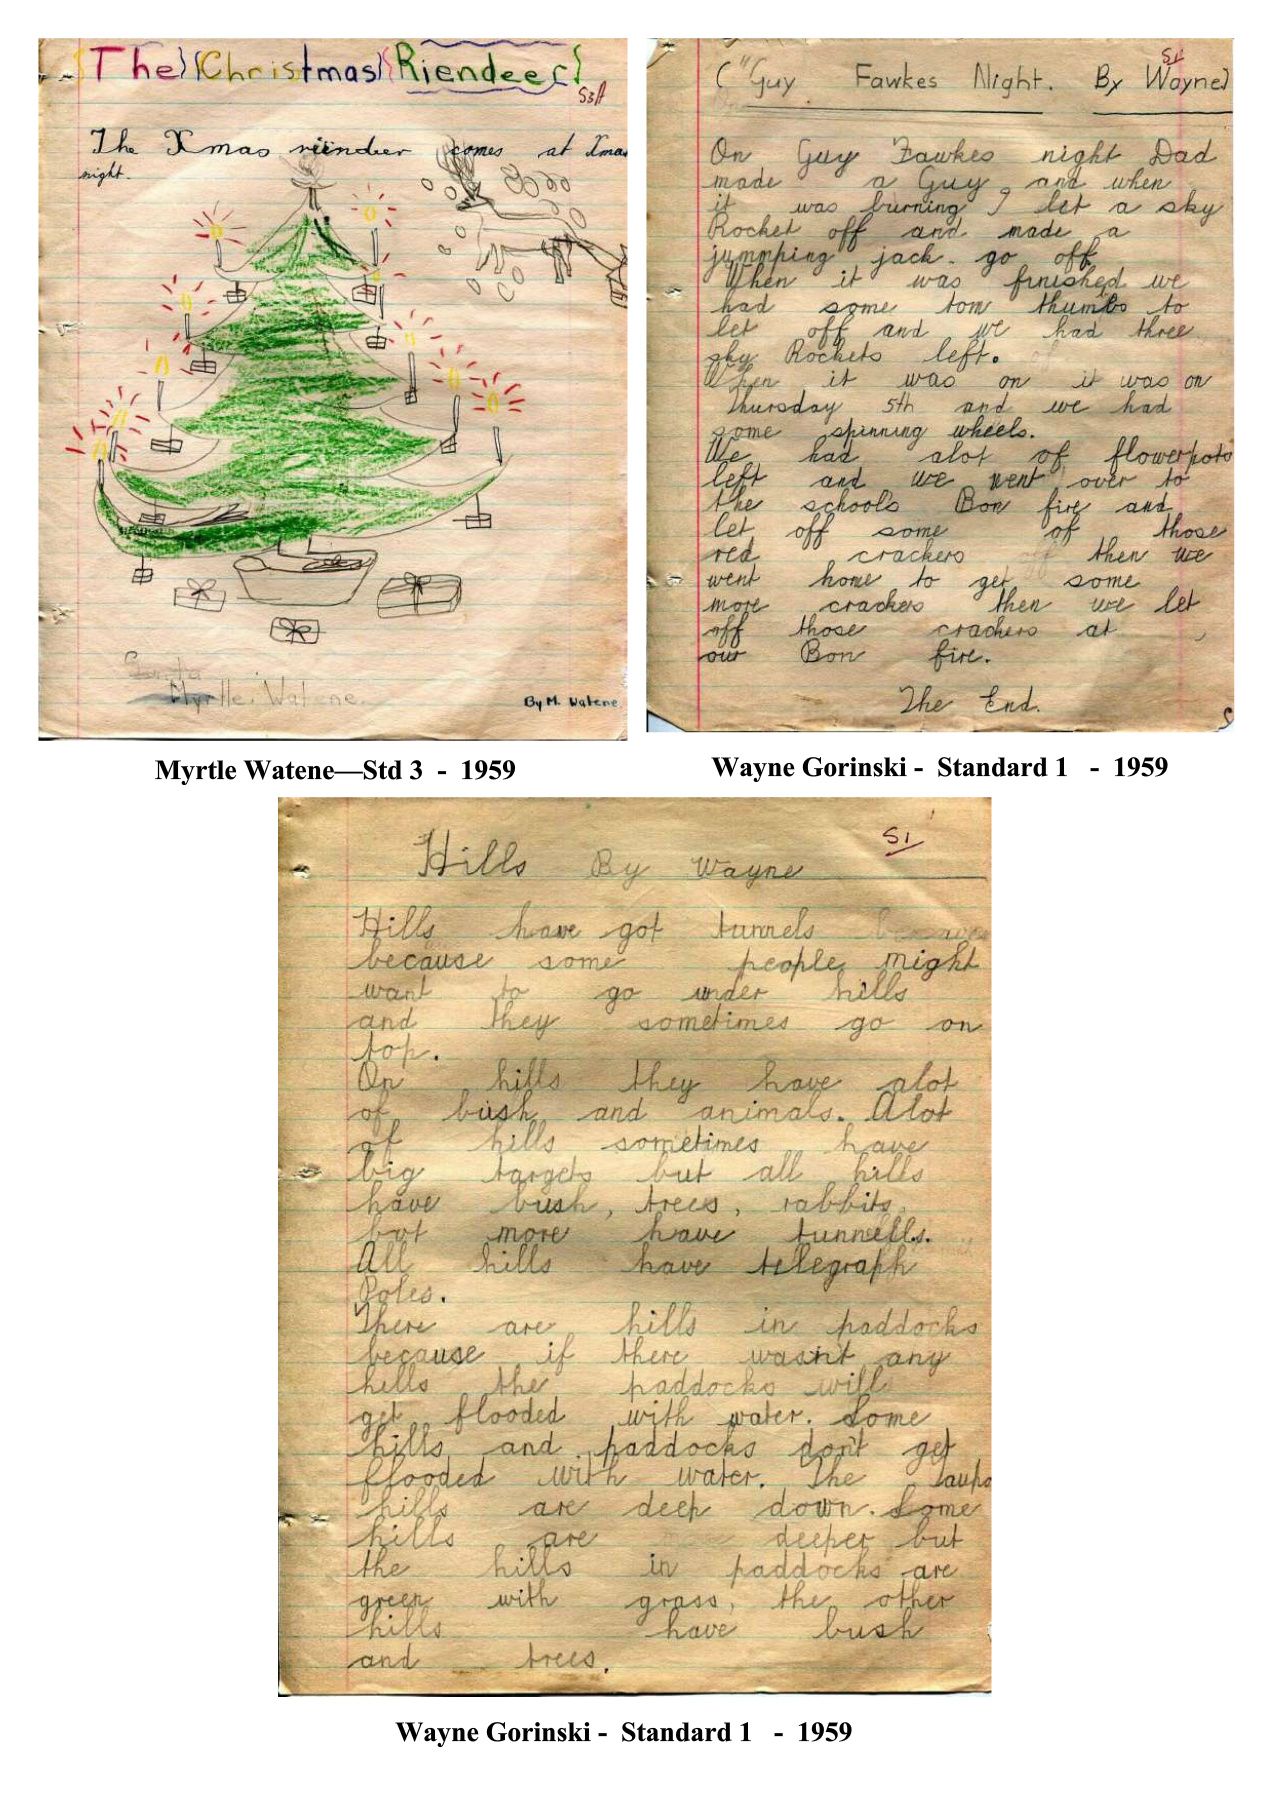 The Christmas Riendeer
S3A
The Xmas reindeer comes at Xmas
night.
Myrtle. Watene.
By M. Watene.
Myrtle Watene—Std 3 - 1959
S1
("Guy Fawkes Night. By Wayne)
On Guy Fawkes night Dad
made a Guy, and when
it was burning I let a sky
Rocket off and made a
jummping jack. go off.
When it was finished we
had some tom thumbs to
let off and we had three
sky Rockets left.
When it was on it was on
Thursday 5th and we had
some spinning wheels.
We had alot of flowerpots
left and we went over to
the schools Bon fire and
let off some of those
red crackers then we
went home to get some
more crackers then we let
off those crackers at
our Bon fire.
The End.
Wayne Gorinski - Standard 1 - 1959
S1
Hills By Wayne
Hills have got tunnels
because some people might
want to go under hills
and they sometimes go on
top.
On hills they have alot
of bush and animals. Alot
of hills sometimes have
big targets but all hills
have bush, trees, rabbits,
but more have tunnells.
All hills have telegraph
Poles.
There are hills in paddocks
because if there wasn't any
hills the paddocks will
get flooded with water. Some
hills and paddocks don't get
flooded with water. The Taupo
hills are deep down. Some
hills are deeper but
the hills in paddocks are
green with grass, the other
hills have bush
and trees.
Wayne Gorinski - Standard 1 - 1959